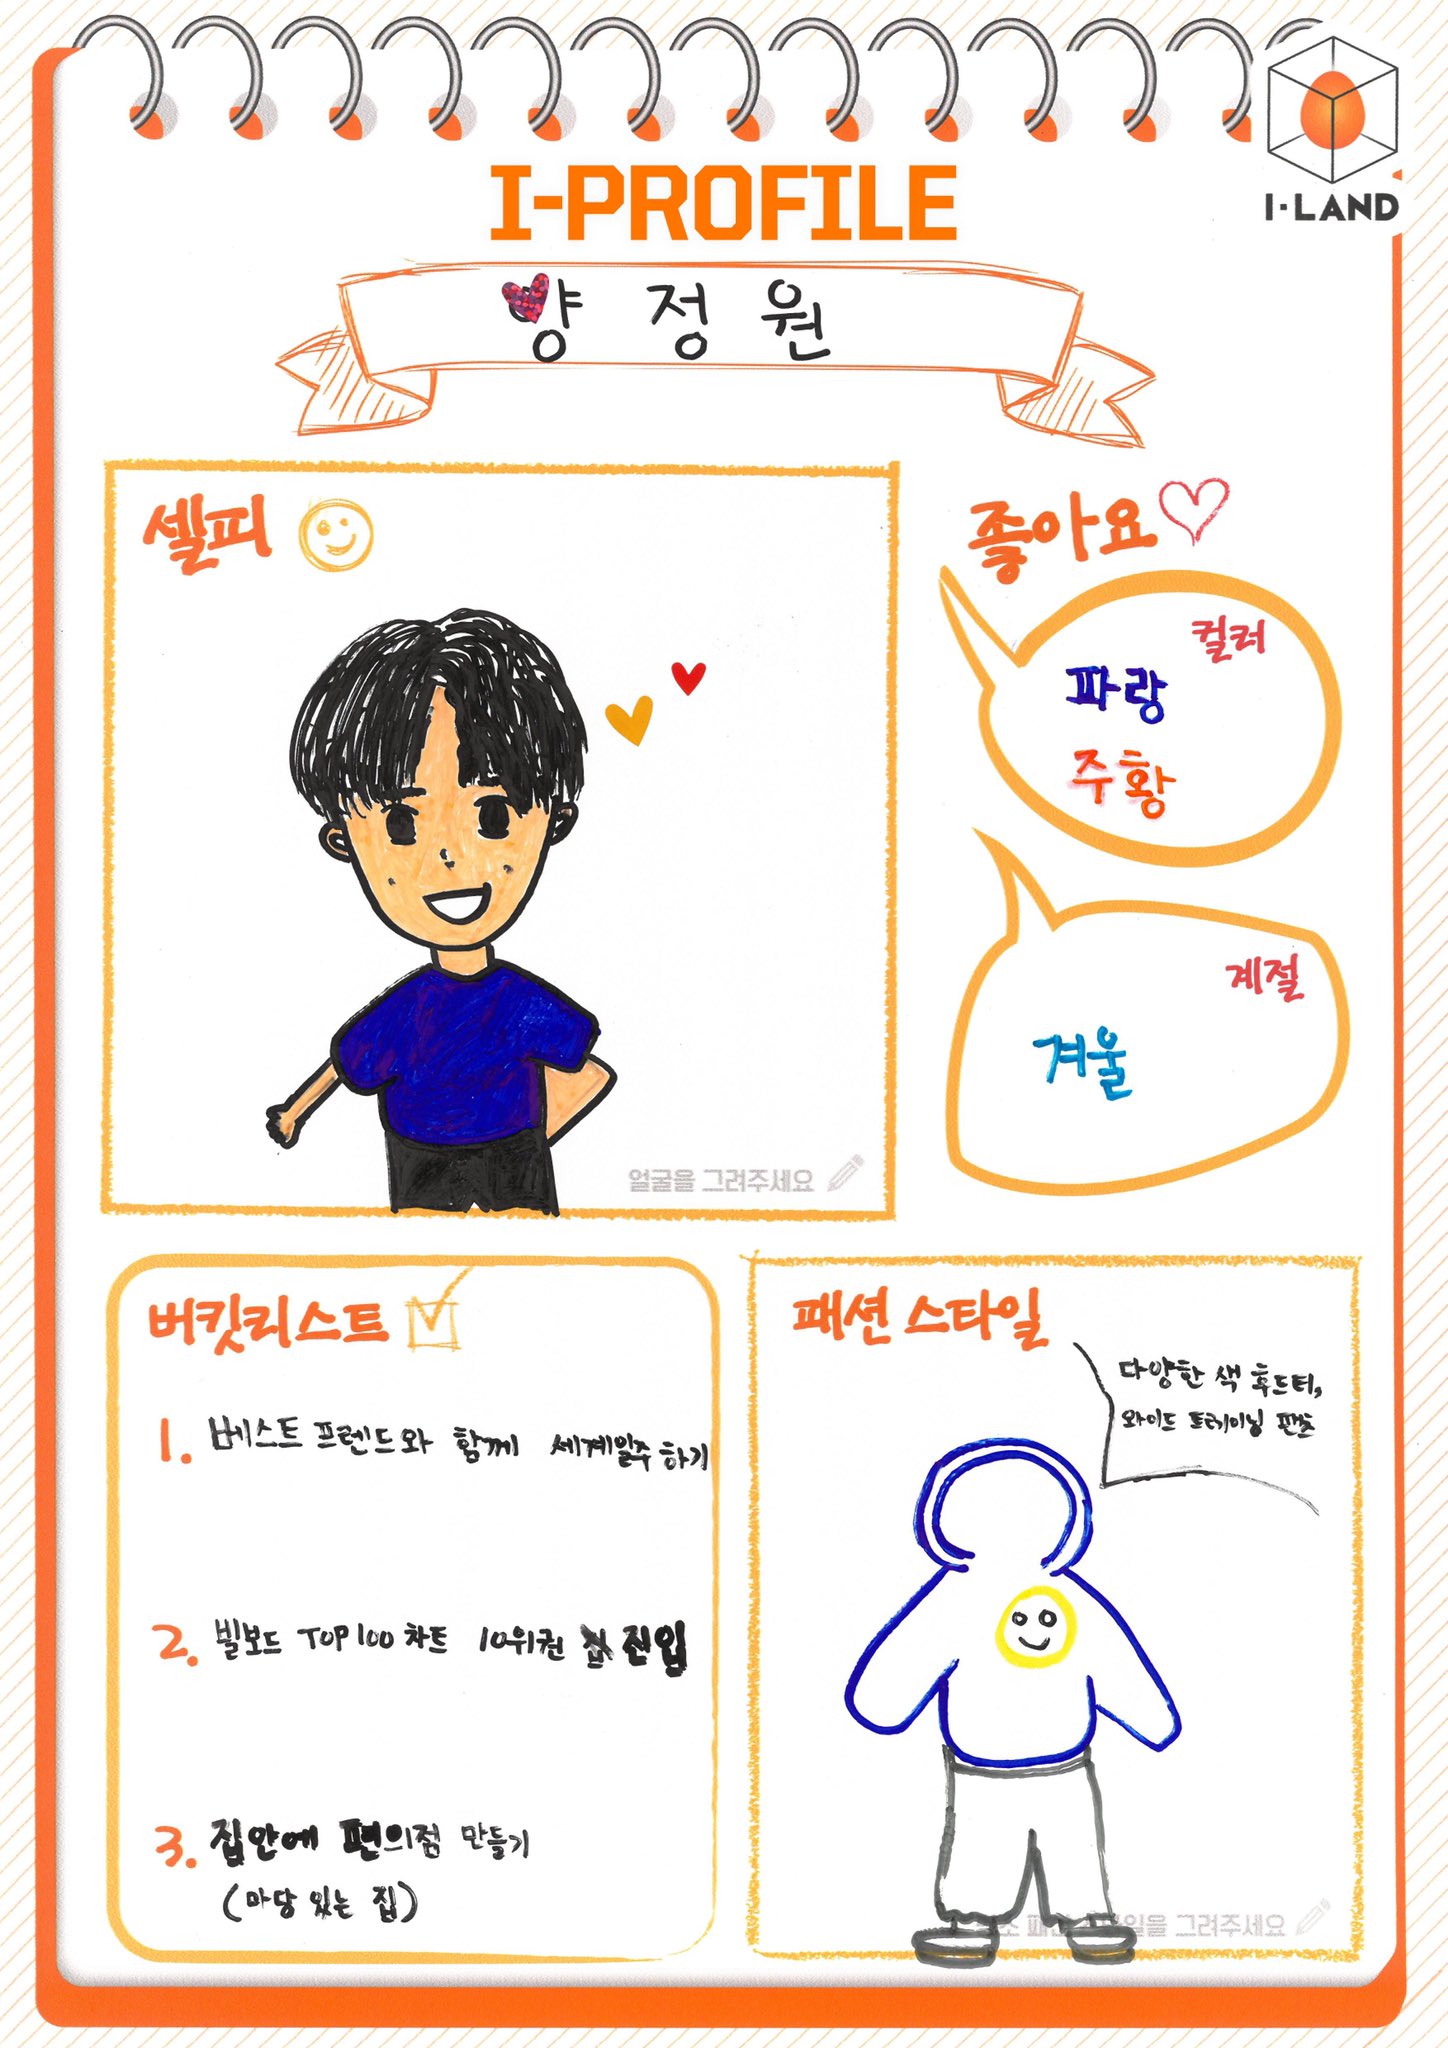 I-LAND
I-PROFILE
양 정 원
셀피
얼굴을 그려주세요
좋아요
컬러
파랑
주황
계절
겨울
버킷리스트
1. 베스트 프렌드와 함께 세계일주 하기
2. 빌보드 TOP 100 차트 10위권 진입
3. 집안에 편의점 만들기
(마당 있는 집)
패션 스타일
다양한 색 후드티,
와이드 트레이닝 팬츠
그려주세요